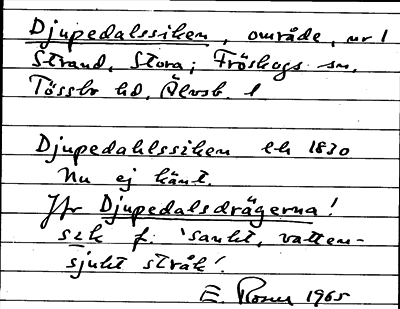 Djupedalssiken, område, nr 1
Strand, Stora; Fröskogs sn,
Tössbo hd, Älvsb. l
Djupedahlssiken lh 1830
Nu ej känt.
Jfr Djupedalsdrägerna!
sik f. 'sankt, vatten-
sjukt stråk'.
E. Rosen 1965